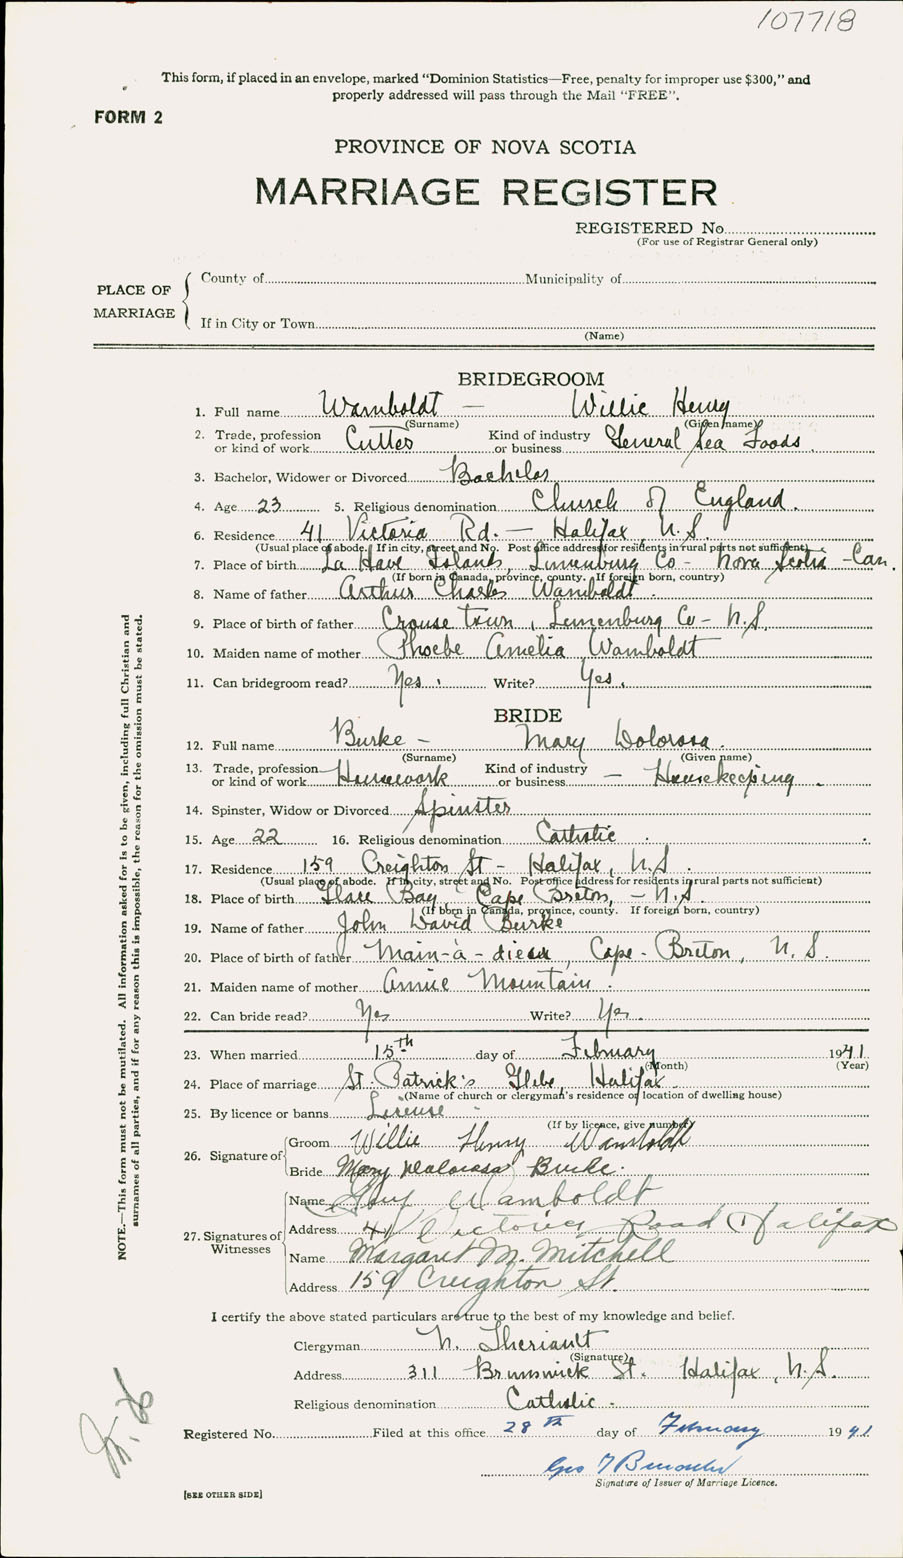 107718
This form, if placed in an envelope, marked “Dominion Statistics—Free, penalty for improper use $300,” and
properly addressed will pass through the Mail “FREE”.
FORM 2
PROVINCE OF NOVA SCOTIA
MARRIAGE REGISTER
REGISTERED No.
(For use of Registrar General only)
PLACE OF MARRIAGE
County of Municipality of
If in City or Town
(Name)
BRIDEGROOM
1. Full name Wamboldt — Willie Henry
(Surname) (Given name)
2. Trade, profession or kind of work Cutter Kind of industry or business General Sea Foods
3. Bachelor, Widower or Divorced Bachelor
4. Age 23 5. Religious denomination Church of England.
6. Residence 41 Victoria Rd. — Halifax, N.S.
(Usual place of abode. If in city, street and No. Post office address for residents in rural parts not sufficient)
7. Place of birth La Have Islands, Lunenburg Co - Nova Scotia - Can.
(If born in Canada, province, county. If foreign born, country)
8. Name of father Arthur Charles Wamboldt.
9. Place of birth of father Crouse town, Lunenburg Co - N.S.
10. Maiden name of mother Phoebe Amelia Wamboldt
11. Can bridegroom read? Yes. Write? Yes.
BRIDE
12. Full name Burke - Mary Dolorosa.
(Surname) (Given name)
13. Trade, profession or kind of work Housework Kind of industry or business — Housekeeping.
14. Spinster, Widow or Divorced Spinster
15. Age 22 16. Religious denomination Catholic.
17. Residence 159 Creighton St - Halifax, N.S.
(Usual place of abode. If in city, street and No. Post office address for residents in rural parts not sufficient)
18. Place of birth Glace Bay, Cape Breton, - N.S.
(If born in Canada, province, county. If foreign born, country)
19. Name of father John David Burke
20. Place of birth of father Main-à-dieu, Cape-Breton, N.S.
21. Maiden name of mother Annie Mountain.
22. Can bride read? Yes Write? Yes.
23. When married 15th day of February 1941
(Month) (Year)
24. Place of marriage St. Patrick's Glebe, Halifax.
(Name of church or clergyman's residence or location of dwelling house)
25. By licence or banns License -
(If by licence, give number)
26. Signature of Groom Willie Henry Wamboldt
Bride Mary Dolorosa Burke.
27. Signatures of Witnesses Name Wamboldt
Address 41 Victoria Road Halifax
Name Margaret M. Mitchell
Address 159 Creighton St.
I certify the above stated particulars are true to the best of my knowledge and belief.
Clergyman N. Theriault
(Signature)
Address 311 Brunswick St. Halifax, N.S.
Religious denomination Catholic -
Registered No. Filed at this office 28th day of February 1941
Geo
Signature of Issuer of Marriage Licence.
[SEE OTHER SIDE]
NOTE.—This form must not be mutilated. All information asked for is to be given, including full Christian and
surnames of all parties, and if for any reason this is impossible, the reason for the omission must be stated.